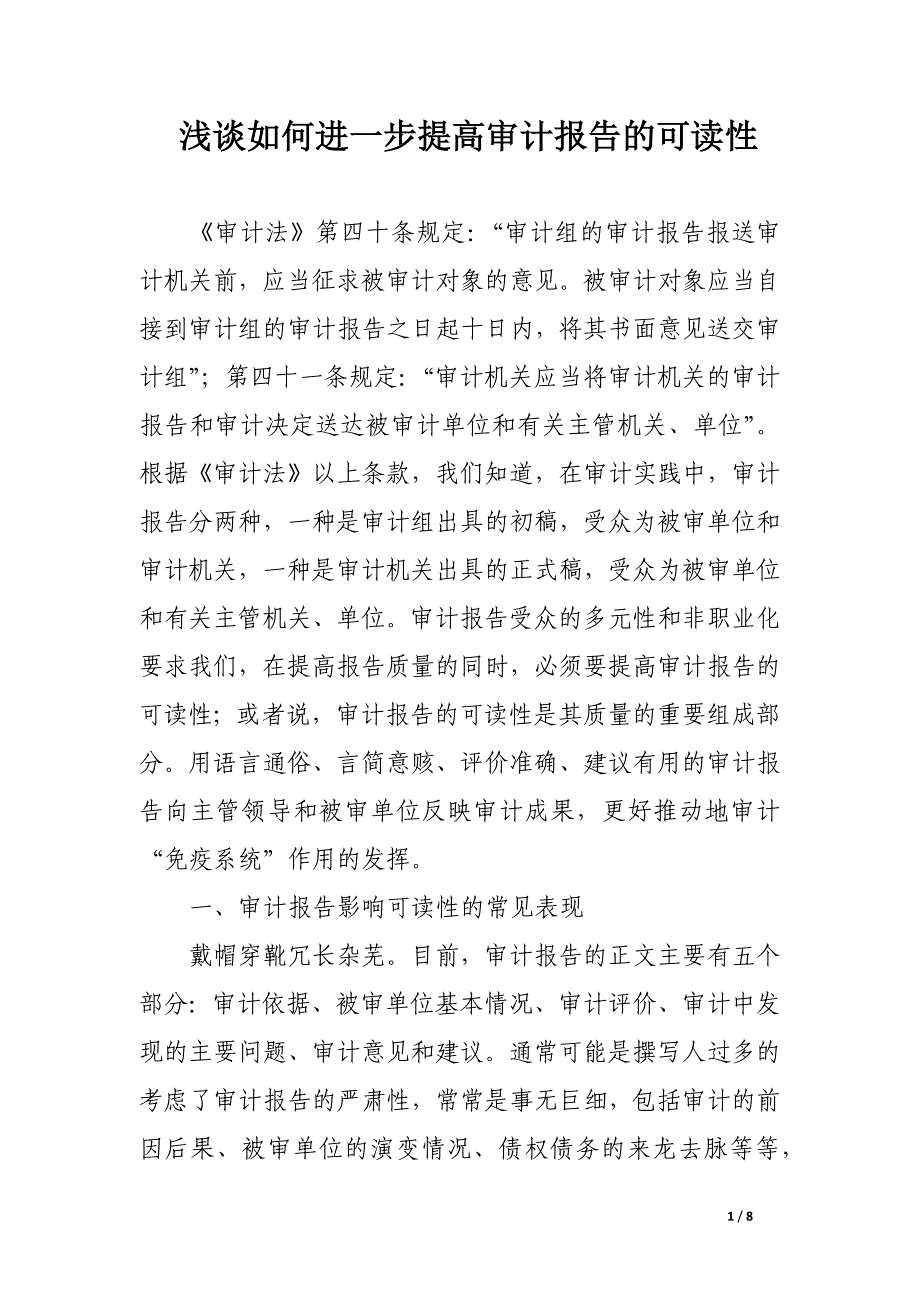 浅谈如何进一步提高审计报告的可读性
《审计法》第四十条规定：“审计组的审计报告报送审
计机关前，应当征求被审计对象的意见。被审计对象应当自
接到审计组的审计报告之日起十日内，将其书面意见送交审
计组”；第四十一条规定：“审计机关应当将审计机关的审计
报告和审计决定送达被审计单位和有关主管机关、单位”。
根据《审计法》以上条款，我们知道，在审计实践中，审计
报告分两种，一种是审计组出具的初稿，受众为被审单位和
审计机关，一种是审计机关出具的正式稿，受众为被审单位
和有关主管机关、单位。审计报告受众的多元性和非职业化
要求我们，在提高报告质量的同时，必须要提高审计报告的
可读性；或者说，审计报告的可读性是其质量的重要组成部
分。用语言通俗、言简意赅、评价准确、建议有用的审计报
告向主管领导和被审单位反映审计成果，更好推动地审计
“免疫系统”作用的发挥。
一、审计报告影响可读性的常见表现
戴帽穿靴冗长杂芜。目前，审计报告的正文主要有五个
部分：审计依据、被审单位基本情况、审计评价、审计中发
现的主要问题、审计意见和建议。通常可能是撰写人过多的
考虑了审计报告的严肃性，常常是事无巨细，包括审计的前
因后果、被审单位的演变情况、债权债务的来龙去脉等等，
1 / 8